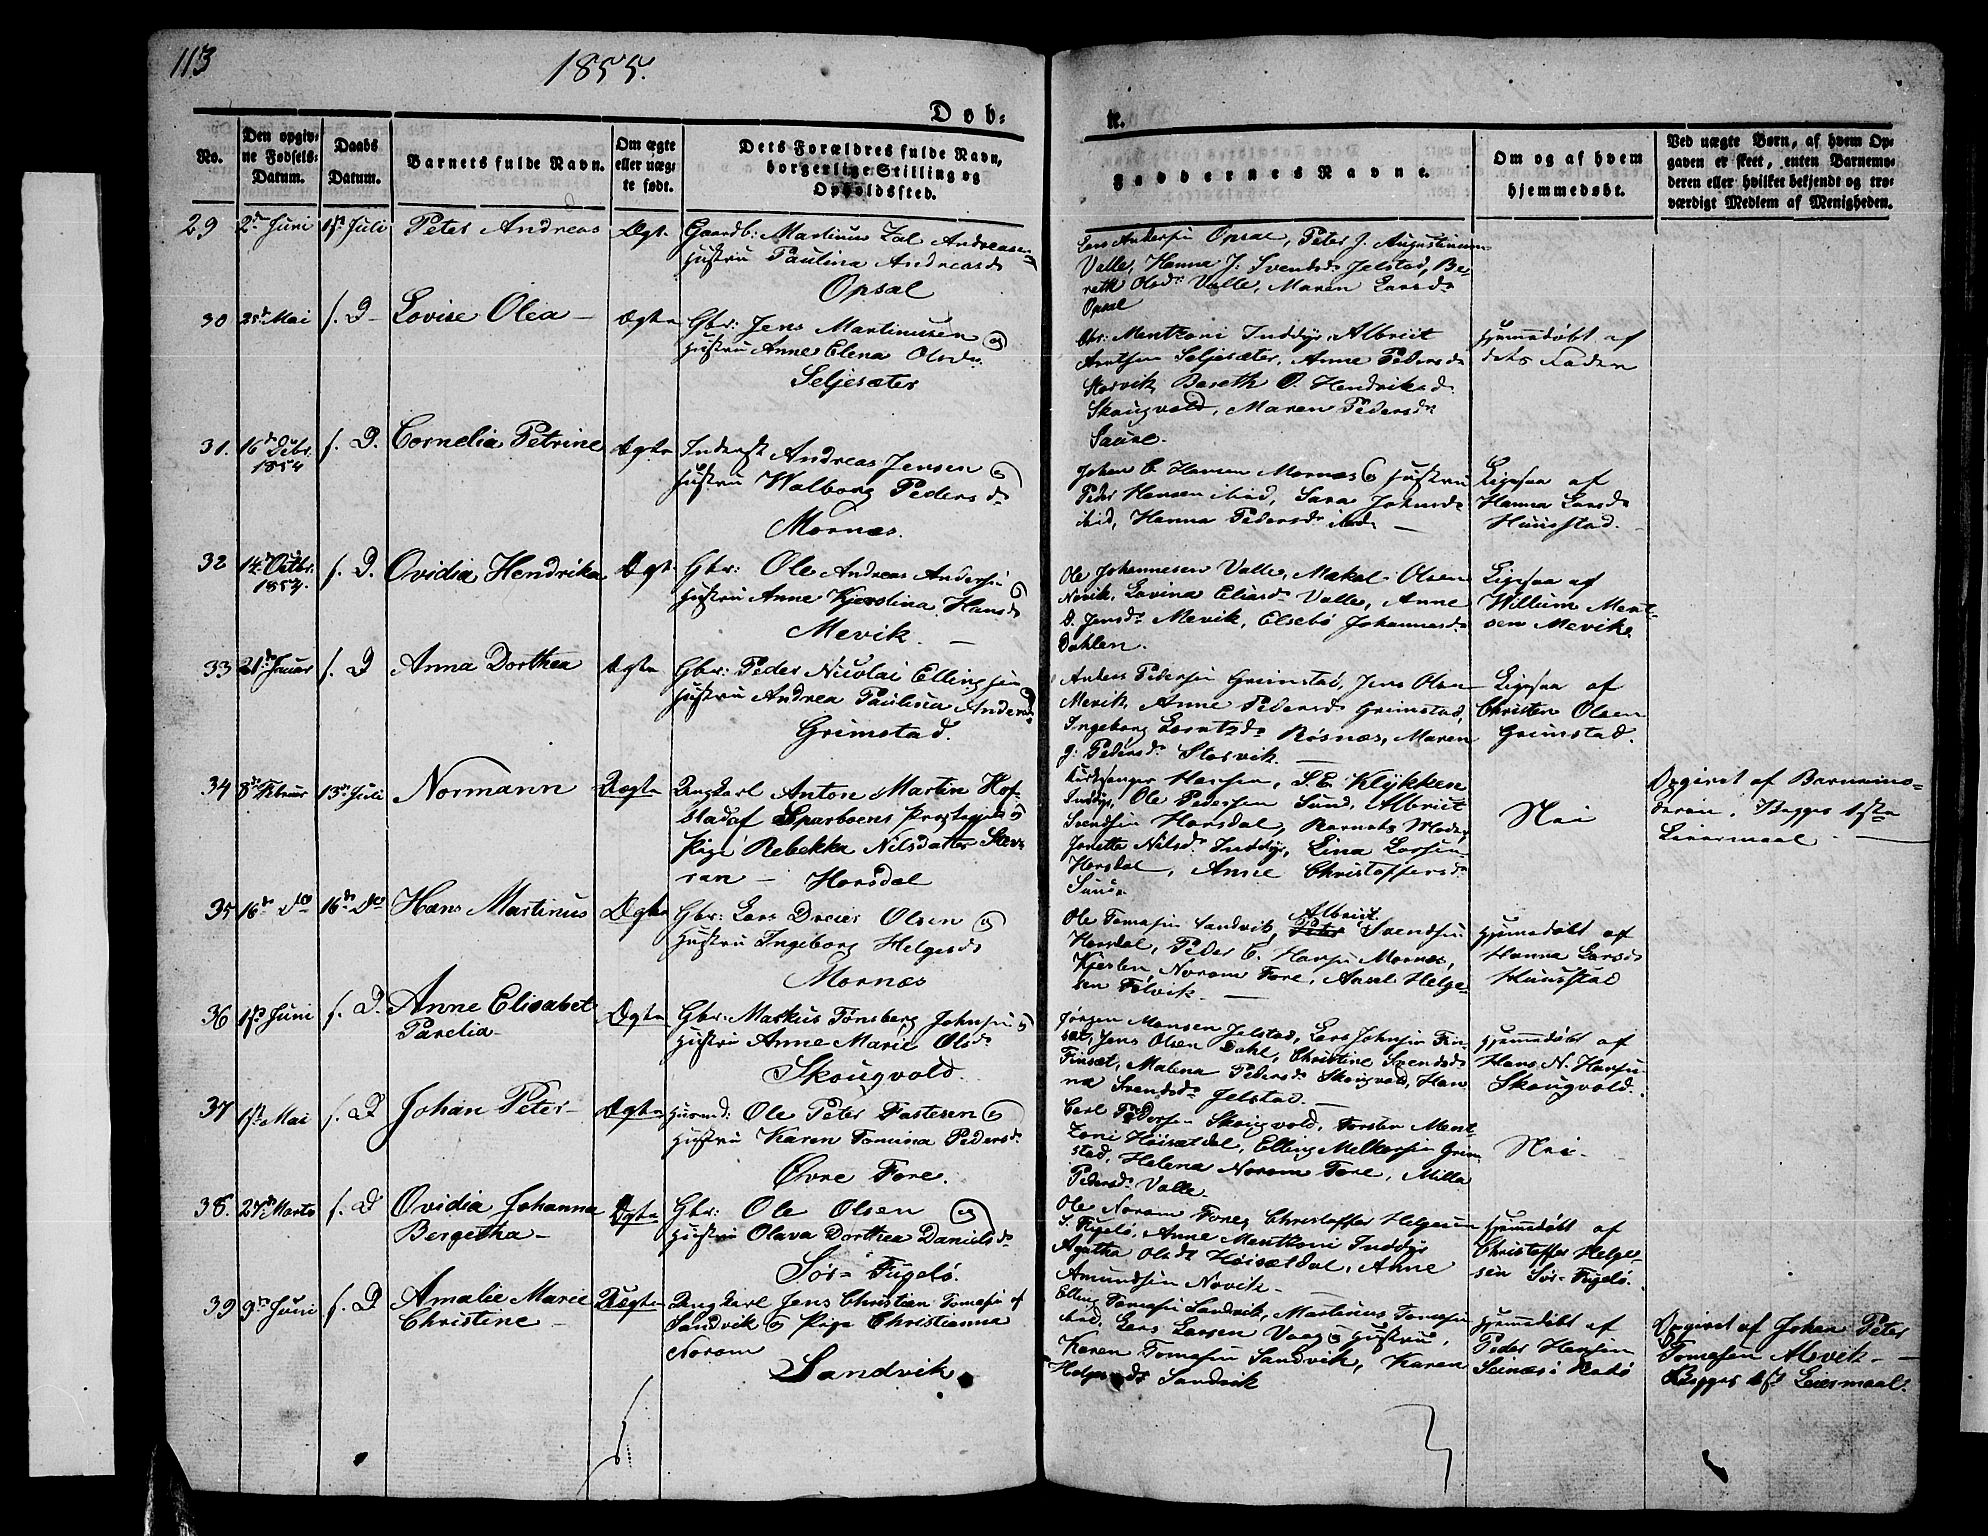 113
1855.
Døb-
te.
No.
Den opgiv-
ne Fødsels-
Datum.
Daabs
Datum.
Barnets fulde Navn.
Om ægte
eller uæg-
te født.
Dets Forældres fulde Navn,
borgerlige Stilling og
Opholdssted.
Faddernes Navne.
Om og af hvem
hjemmedøbt.
Ved uægte Børn, af hvem Op-
gaven er skeet, enten Barnemo-
deren eller hvilket bekjendt og tro-
værdigt Medlem af Menigheden.
29 2den Juni 1ste Juli Peter Andreas Ægte Gaardb: Martinus Zal Andreasen
Hustru Paulina Andreasd
Opsal
Lars Andersen Opsal, Peter J. Augustinusen
Valle, Hanna J. Svendsd: Jelstad, Be-
reth Olsd: Valle, Maren Larsd:
Opsal
30 25de Mai s. D. Lovise Olea Ægte Gbr: Jens Martinusen og
Hustru Anne Elena Olsd:
Seljesæter
Chr: Mentzoni Inddyr, Albrict
Arntsen Seljesæter, Anne Pedersd
Storvik, Bereth O. Hendriksd
Skougvold, Maren Pedersd:
Saure.
Hjemmedøbt af
dets Fader
31. 16de Debr. 1854 s. D. Cornelia Petrine Ægte Inderst Andreas Jensen og
Hustru Walborg Pedersd:
Mornæs.
Johan C. Hansen Mornæs og Hustru
Peder Hansen ibid, Sara Johnsd:
ibid, Hanna Pedersd: ibid
Ligesaa af
Hanna Larsd:
Huusstad.
32 14de Octbr. 1854. s. D. Ovidia Hendrika Ægte Gbr: Ole Andreas Andersen og
Hustru Anne Kjerstina Hansd:
Mevik.
Ole Johannesen Valle, Mikal Olsen
Novik, Lovina Eliasd: Valle, Anne
D. Jensd: Mevik, Elsebø Johannesd:
Dahlen.
Ligesaa af
Willum Ment-
sen Mevik
33 21de Januar s. D Anna Dorthea Ægte Gbr: Peder Nicolai Ellingsen og
Hustru Andrea Paulina Andersd:
Grimstad.
Anders Pedersen Grimstad, Jens Olsen
Mevik, Anne Pedersd: Grimstad,
Ingeborg Lorntsd: Røsnæs, Maren
J. Pedersd: Storvik.
Ligesaa af
Christen Olsen
Grimstad.
34 8de Februar 13de Juli Normann Uægte Ungkarl Anton Martin Hof-
stad af Sparboens Præstegjæld og
Pige Rebekka Nilsdatter Stev-
ran - Horsdal
Kirkesanger Hansen, S. E. Klykken
Inddyr, Ole Pedersen Sund, Albrict
Svendsen Horsdal, Barnets Moder,
Jonetta Nilsd: Inddyr, Lina Larsen
Horsdal, Anne Christoffersd:
Sund
Nei
Opgivet af Barnemo-
deren. Begges 1ste
Leiermaal
35 16de do 16de do Hans Martinus Ægte Gbr: Lars Dreier Olsen og
Hustru Ingeborg Helgesd:
Mornæs
Albrict
Ole Tomasen Sandvik, Peter Svendsen
Horsdal, Peder C. Hansen Mornæs,
Kjersten Norom Fore, Axel Helge-
sen Følvik.
Hjemmedøbt af
Hanna Larsd:
Huusstad
36 1ste Juni s. D. Anne Elisabet
Parelia
Ægte Gbr: Markus Tønsberg Johnsen og
Hustru Anne Marie Olsd:
Skougvold.
Jørgen Monsen Jelstad, Lars Johnsen Fin-
sæt, Jens Olsen Dahl, Christine Svendsd:
Finsæt, Malena Pedersd: Skougvold, Han-
na Svendsd: Jelstad.
Hjemmedøbt af
Hans N. Hansen
Skougvold.
37 1ste Mai s. D Johan Peter Ægte Huusmd: Ole Peter Fastesen og
Hustru Karen Tomina Pedersd:
Øvre Fore.
Carl Pedersen Skougvold, Torsten Ment-
zoni Høisætdal, Elling Melkersen Grim-
stad, Helena Norom Fore, Milla
Pedersd: Valle.
Nei
38. 27de Marts s. D Ovidia Johanna
Bergetha
Ægte Gbr: Ole Olsen og
Hustru Olava Dorthea Danielsd:
Sør-Fugelø.
Ole Norom Fore, Christoffer Helgesen
S. Fugelø, Anne Mentzoni Inddyr
Agatha Olsdt Høisætdal, Anne
Amundsen Novik
Hjemmedøbt af
Christoffer Helge-
sen Sør-Fugelø.
39 9de Juni s. D Amalie Marie
Christine
Uægte Ungkarl Jens Christian Tomasen af
Sandvik og Pige Christianna
Norom
Sandvik
Elling Tomasen Sandvik, Martinus Tomasen
ibid, Lars Larsen Vaag og Hustru,
Karen Tomasen Sandvik, Karen
Helgesd: Sandvik
Hjemmedøbt af
Peder Hansen
Seines i Rødø
Opgivet af Johan Peter
Tomasen Mevik
Begges 1ste Leiermaal.